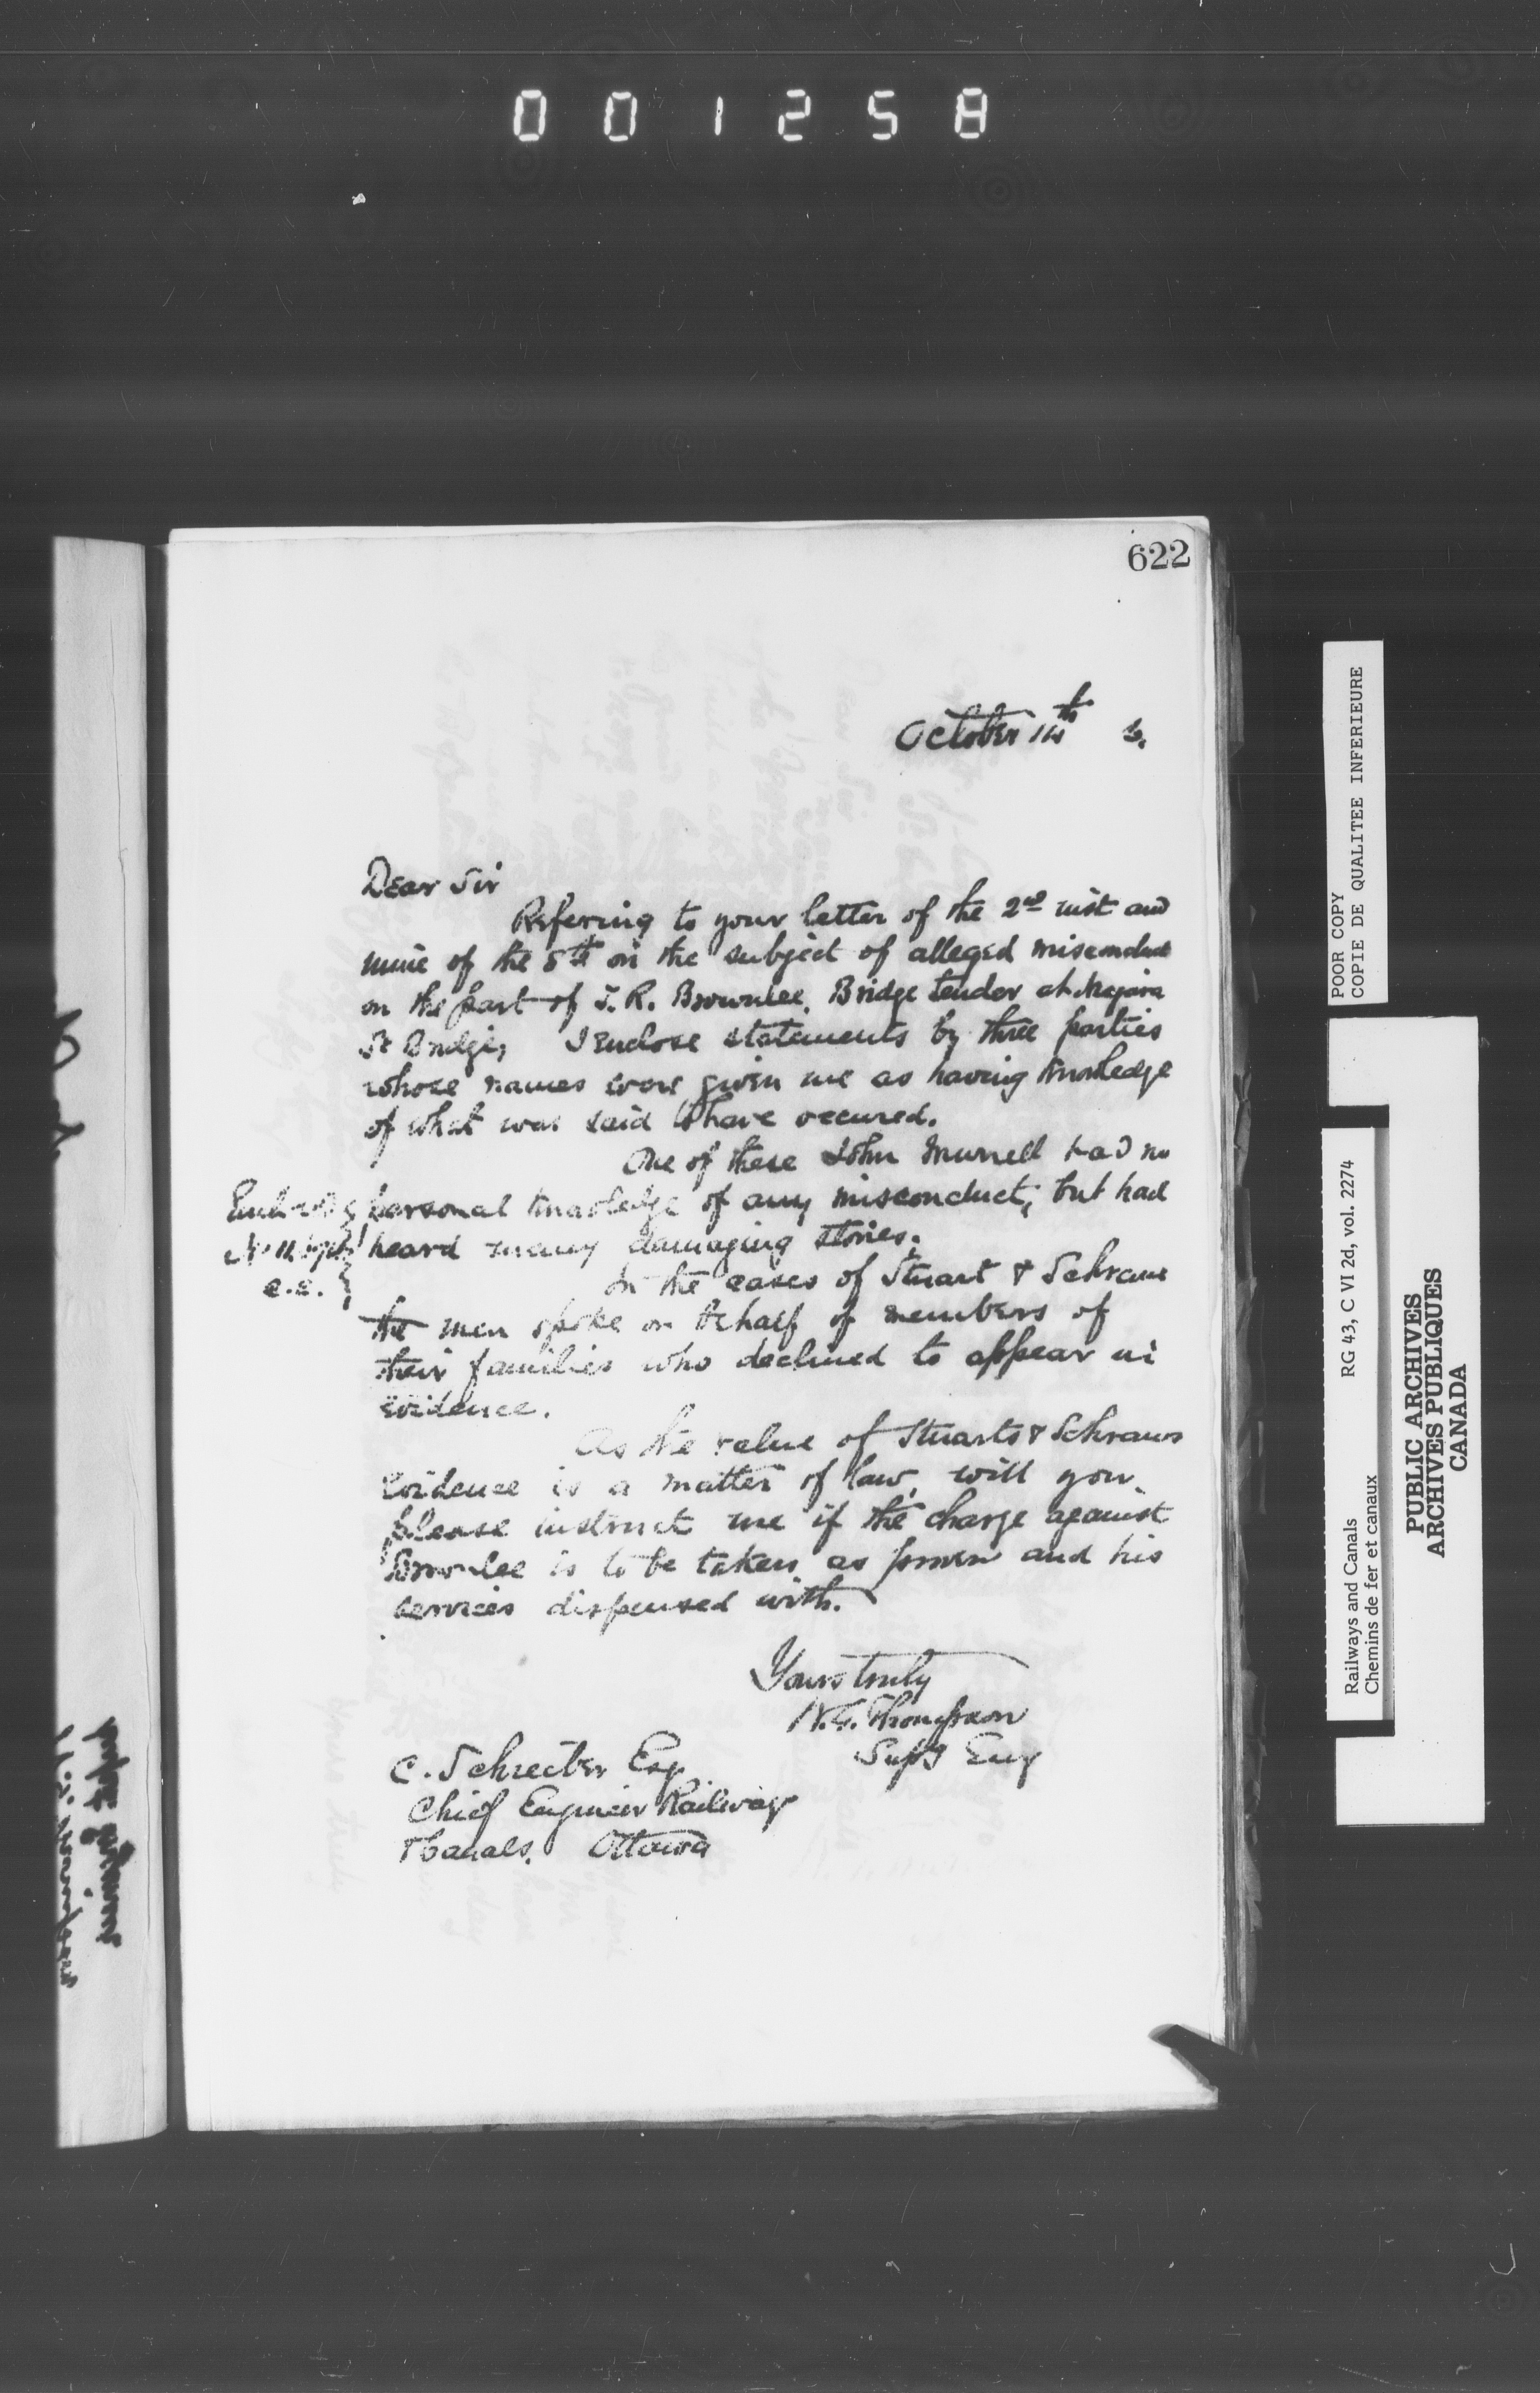 001258
622
October 14th 6.
Dear Sir
Refering to your letter of the 2nd inst and
mine of the 5th on the subject of alleged misconduct
on the part of J. R. Brownlee, Bridge tender at Niagara
St Bridge, I enclose statements by three parties
whose names were given me as having knowledge
of what was said to have occured.
One of these John Murrell had no
personal knowledge of any misconduct, but had
heard many damaging stories.
e.e.
In the cases of Stuart & Schraw
the men spoke on behalf of members of
their families who declined to appear in
evidence.
As the value of Stuarts & Schraws
evidence is a matter of law, will you
please instruct me if the charge against
Brownlee is to be taken as proven and his
services dispensed with.
Yours truly
W. G. Thompson
Supt Eng
C. Schreiber Esq
Chief Engineer Railway
& Canals. Ottawa
POOR COPY
COPIE DE QUALITEE INFERIEURE
Railways and Canals RG 43, C VI 2d, vol. 2274
Chemins de fer et canaux
PUBLIC ARCHIVES
ARCHIVES PUBLIQUES
CANADA